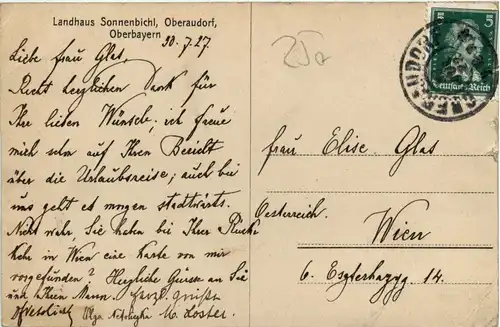 Landhaus Sonnenbichl, Oberaudorf,
Oberbayern
30. 7. 27.
25a
5
Deutsches Reich
Liebe Frau Glas,
Recht herzlichen Dank für
Ihre lieben Wünsche, ich freue
mich schon auf Ihren Bericht
über die Urlaubsreise; auch bei
uns geht es morgen stadtwärts.
Nicht wahr, Sie haben bei Ihrer Rück-
kehr in Wien eine Karte von mir
vorgefunden? Herzliche Grüsse an Sie
und Ihren Mann. Herzl. Grüße
Olga M. Koster.
Frau Elise Glas
Oesterreich.
Wien
6. Eszterhazyg. 14.